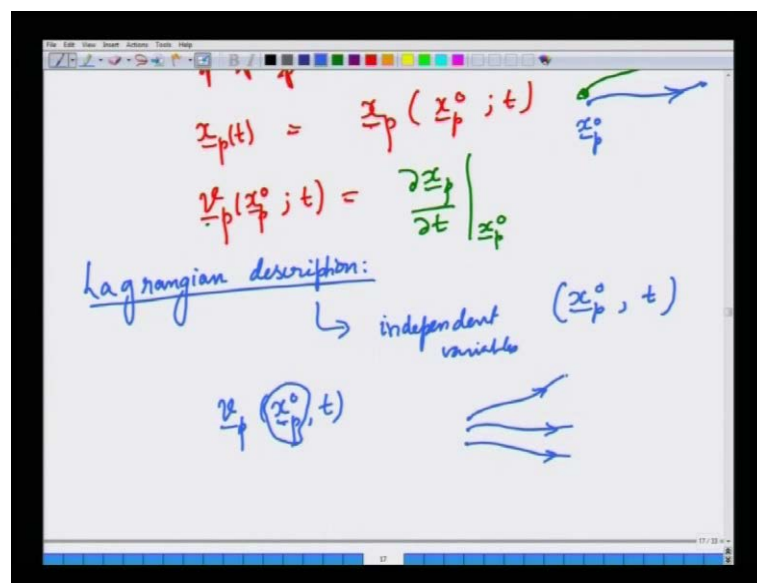 File Edit View Insert Actions Tools Help
x_p(t) = x_p ( x_p^o ; t )
x_p^o
v_p(x_p^o ; t) = ∂x_p/∂t |x_p^o
Lagrangian description:
↳ independent variables (x_p^o, t)
v_p (x_p^o, t)
17 / 33
17